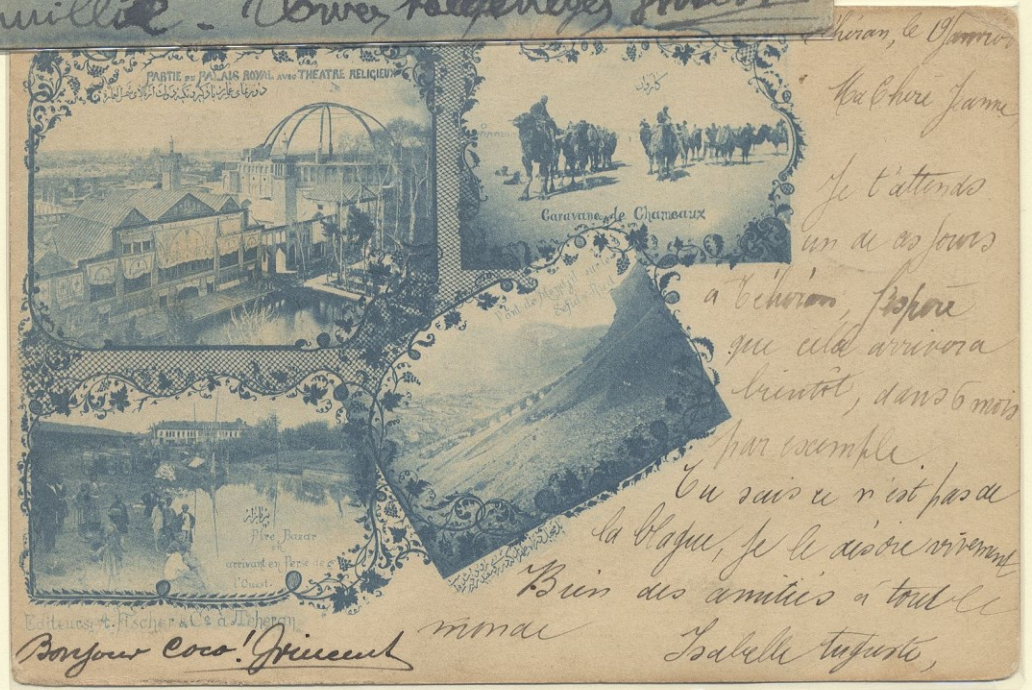 PARTIE DU PALAIS ROYAL AVEC THEATRE RELIGIEUX
Caravane de Chameaux
Pire Bazar
arrivant en Perse de
l'Ouest.
Editeurs: A. Fischer & Cº à Téhéran
Téhéran, le 19 Janvier
Ma Chère Jeanne
Je t'attends
un de ces jours
à Téhéran, j'espère
que cela arrivera
bientôt, dans 6 mois
par exemple
Tu sais ce n'est pas de
la blague, je le désire vivement
Bien des amitiés à tout le
monde
Isabelle Auguste,
Bonjour Coco!